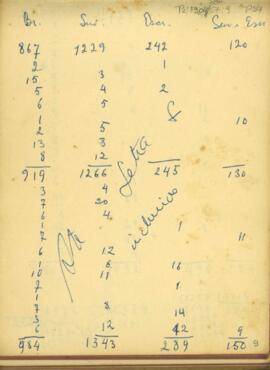 Br. Sui. Dior. Sen. Esu
867 1229 242 120
2 1
15 3
5 4 2
6 5
1 & 10
2 5
13 3
8 12
919 1266 245 130
3 4
7 20
6 4
1 1
7 11
6 12
1 8 16
10 11
2 1
1
7 8 14
3
6 12 42 9
984 1343 289 150
Letra
incluida